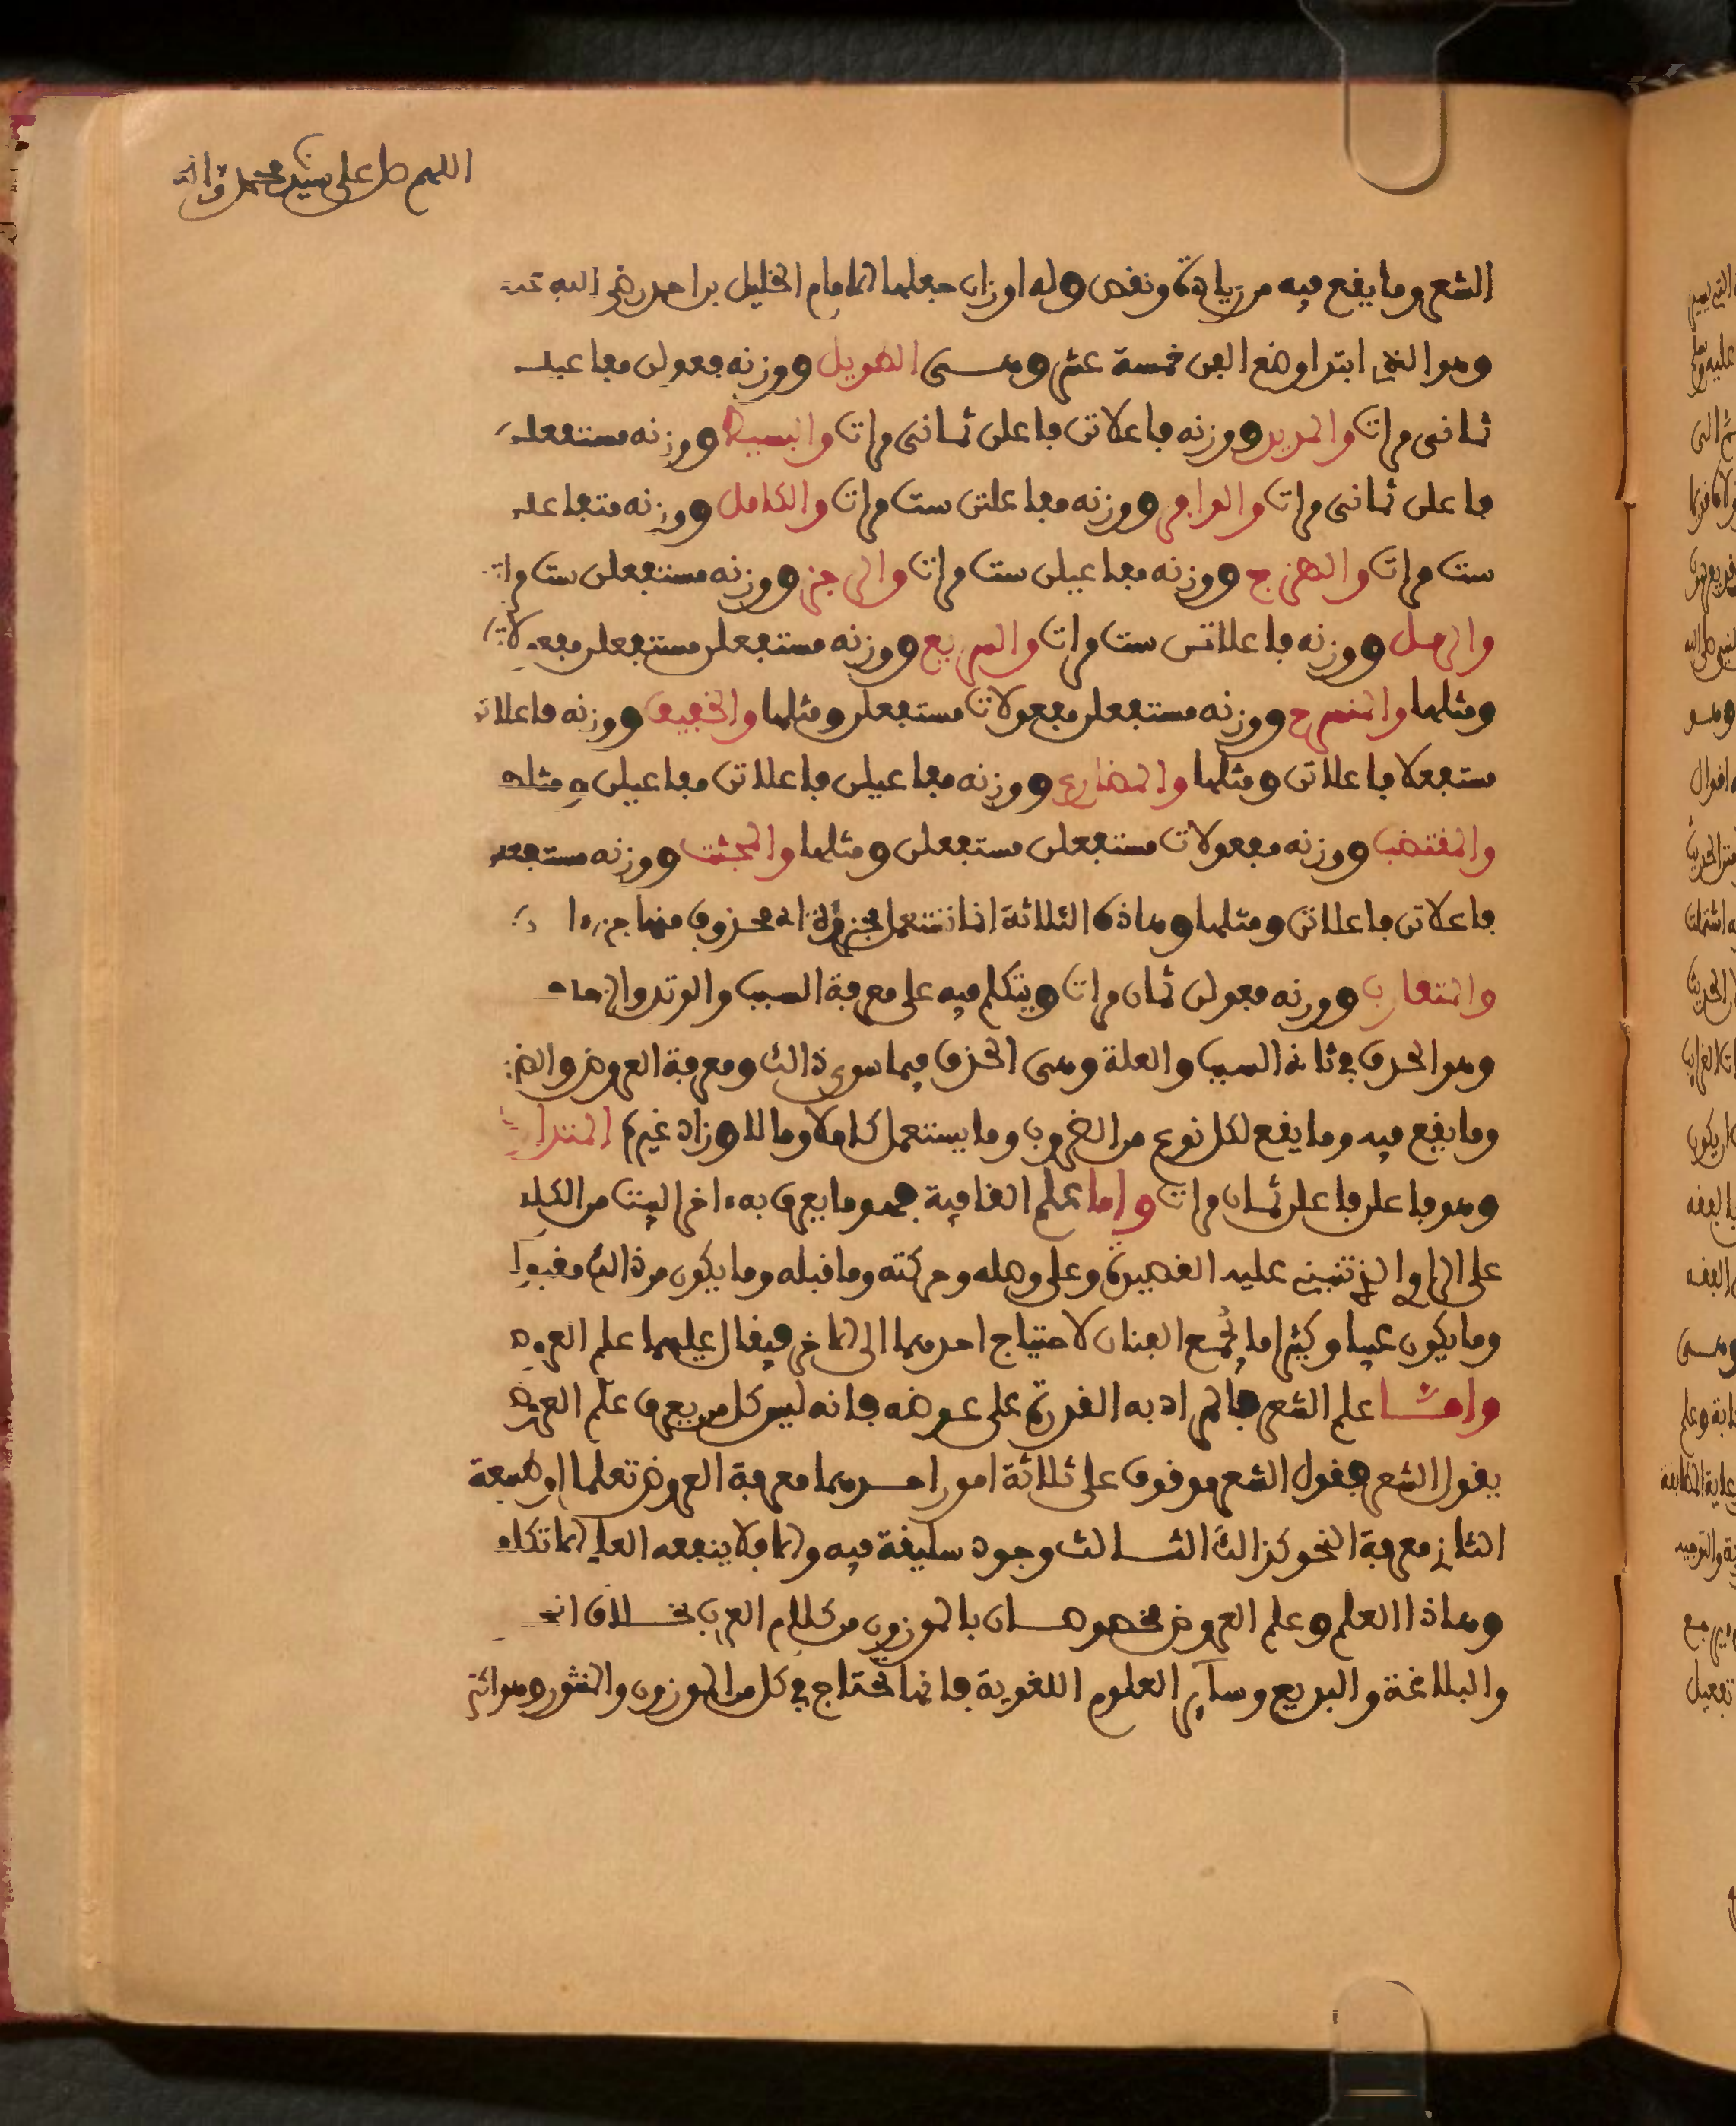 اللهم صل على سيدنا محمد واله
الشعر وما يقع فيه من زيادة ونقص وله اوزان جعلها الامام الخليل بن احمد رضي الله عنه
وهو الذي ابتدا وضع الفن خمسة عشر وهى الطويل ووزنه فعولن مفاعيلن
ثمانى مرات والمديد ووزنه فاعلاتن فاعلن ثمانى مرات والبسيط ووزنه مستفعلن
فاعلن ثمانى مرات والوافر ووزنه مفاعلتن ست مرات والكامل ووزنه متفاعلن
ست مرات والهزج ووزنه مفاعيلن ست مرات والرجز ووزنه مستفعلن ست مرات
والرمل ووزنه فاعلاتن ست مرات والسريع ووزنه مستفعلن مستفعلن مفعولات
ومثلها والمنسرح ووزنه مستفعلن مفعولات مستفعلن ومثلها والخفيف ووزنه فاعلاتن
مستفعلا فاعلاتن ومثلها والمضارع ووزنه مفاعيلن فاعلاتن مفاعيلن ومثلها
والمقتضب ووزنه مفعولات مستفعلن مستفعلن ومثلها والمجثت ووزنه مستفعلن
فاعلاتن فاعلاتن ومثلها وهاذه الثلاثة انما تستعمل مجزوة اى محذوف منها جزءا
والمتقارب ووزنه فعولن ثمان مرات ويتكلم فيه على معرفة السبب والوتد والزحاف
وهو الحذف في ثانى السبب والعلة وهى الحذف فيما سوى ذالك ومعرفة العروض والضرب
وما يقع فيه وما يقع لكل نوع من الضروب وما يستعمل كاملا وما لا وزاد غيره المتدارك
وهو فاعلن فاعلن ثمان مرات واما علم القافية فهو ما يعرف به ءاخر البيت من الكلام
على الراوي الذي تنبني عليه القصيدة وعلى وصله وحركته وما قبله وما يكون من ذالك مقبولا
وما يكون عيبا وكثيرا ما يجمع الفنان لاحتياج احدهما الى الاخر فيقال عليهما علم العروض
وامــا علم الشعر فالمراد به القدرة على عروضه فانه ليس كل من يعرف علم العروض
يقول الشعر فقول الشعر موقوف على ثلاثة امور احدهما معرفة العروض تعلما او طبيعة
الثاني معرفة النحو كذالك الثالث وجود سليقة فيه والا فلا ينفعه العلم الا تكلف
وهاذا العلم وعلم العروض مخصوصان بالموزون من كلام العرب بخلاف النحو
والبلاغة والبديع وسآير العلوم اللغوية فانها تحتاج في كل من الموزون والمنثور وهو اكثر